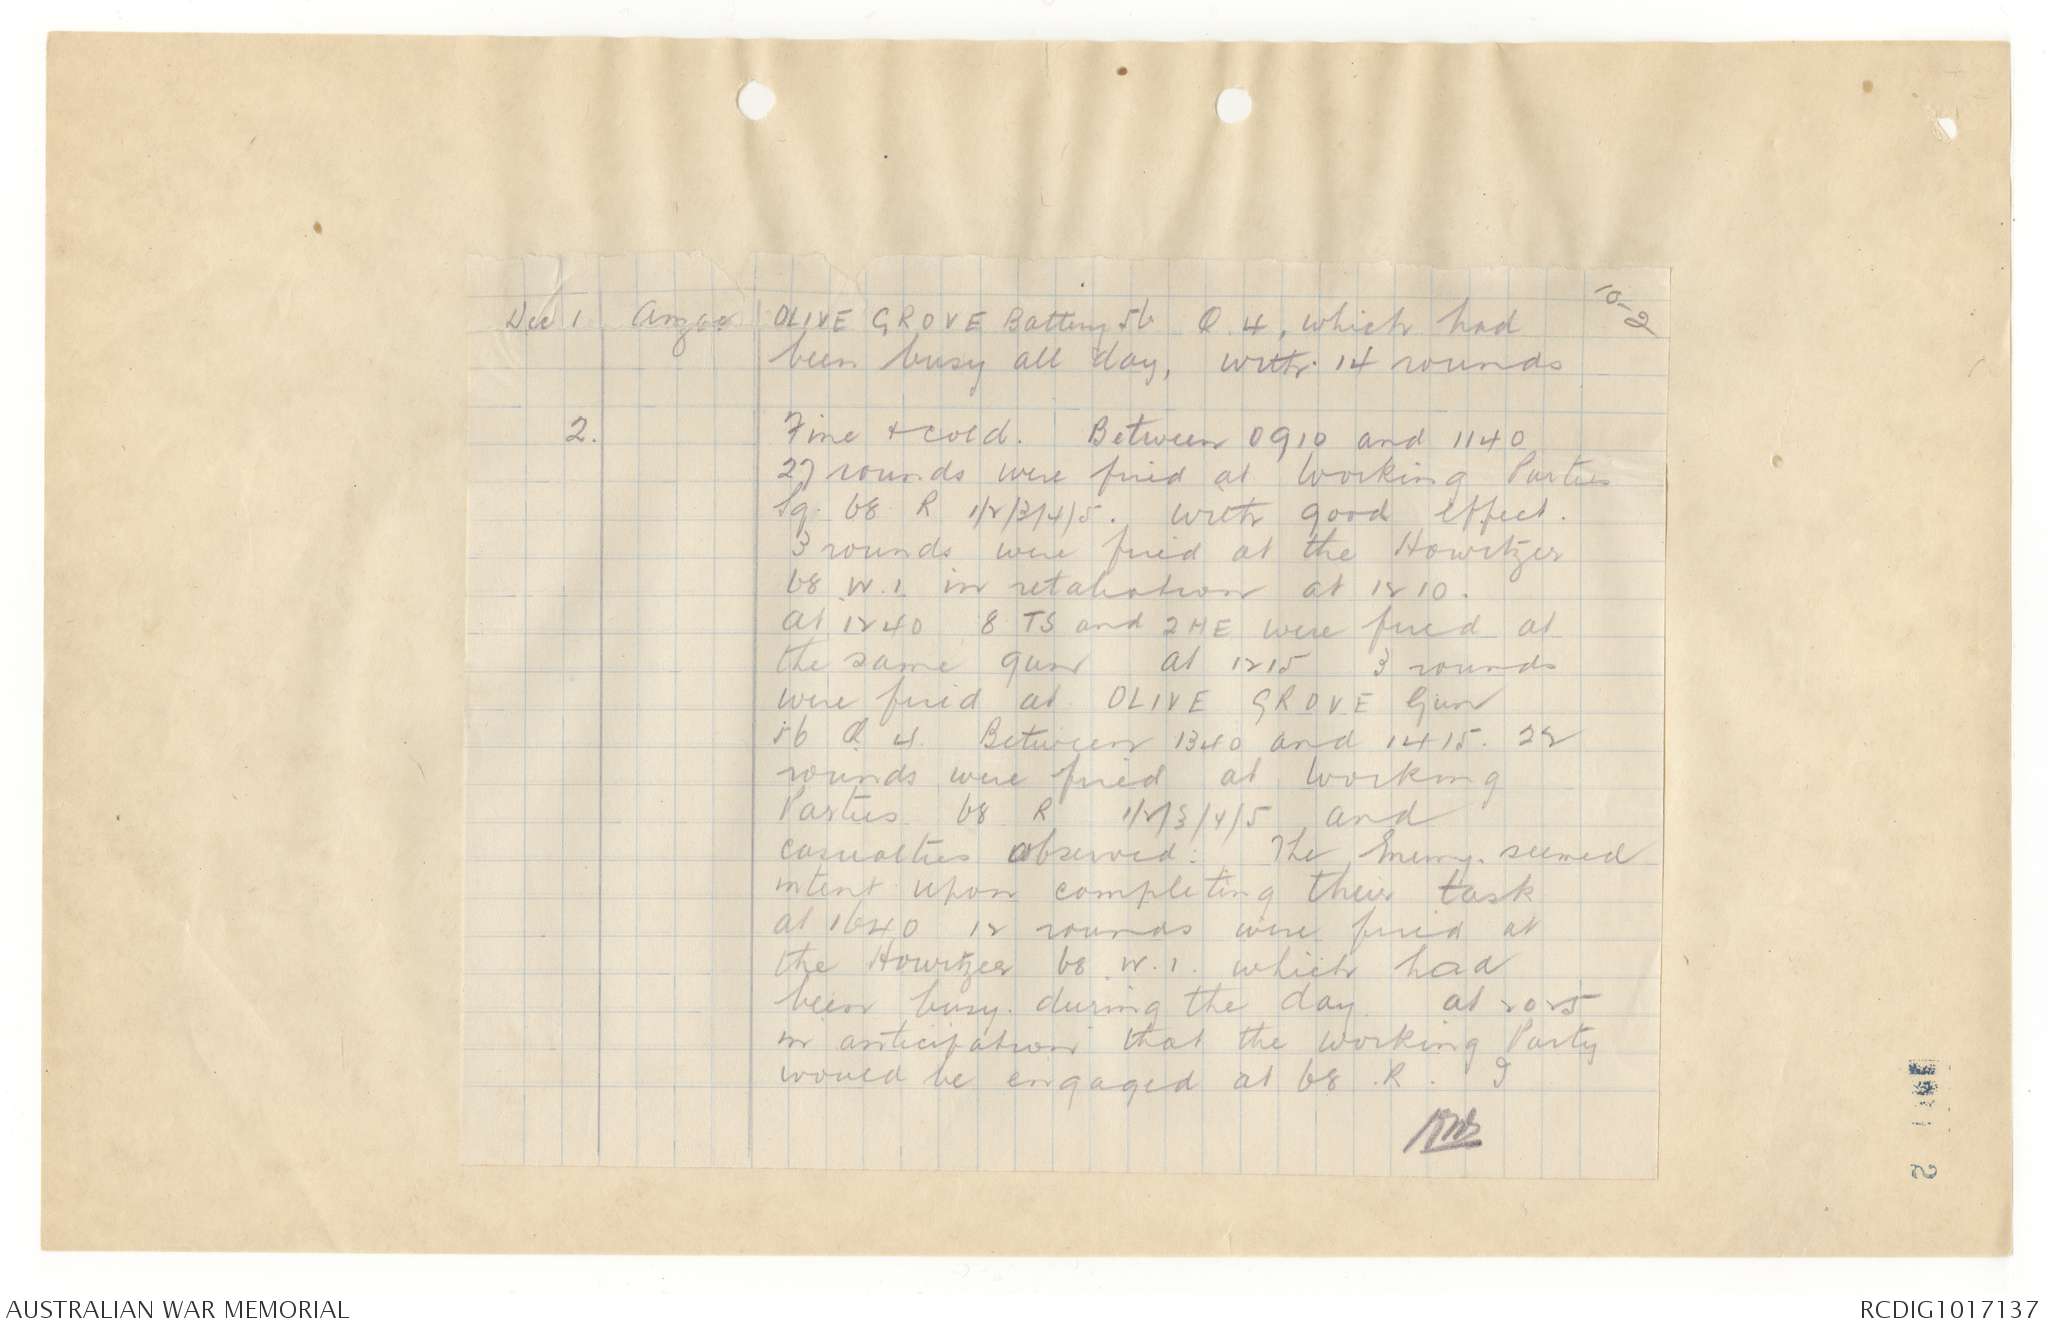 10-2
Dec 1 Anzac OLIVE GROVE Battery 56 Q 4, which had
been busy all day, with 14 rounds
2. Fine & cold. Between 0910 and 1140
27 rounds were fired at Working Parties
Sq. 68 R 1/2/3/4/5. with good effect.
3 rounds were fired at the Howitzer
68 W.1. in retaliation at 1210.
at 1240 8 TS and 2 HE were fired at
the same gun at 1215 3 rounds
were fired at OLIVE GROVE Gun
56 Q 4. Between 1340 and 1415. 22
rounds were fired at Working
Parties 68 R 1/2/3/4/5 and
casualties observed: The Enemy seemed
intent upon completing their task
at 1640 12 rounds were fired at
the Howitzer 68 W.1. which had
been busy during the day at 2025
in anticipation that the working Party
would be engaged at 68 R. I
2
AUSTRALIAN WAR MEMORIAL
RCDIG1017137